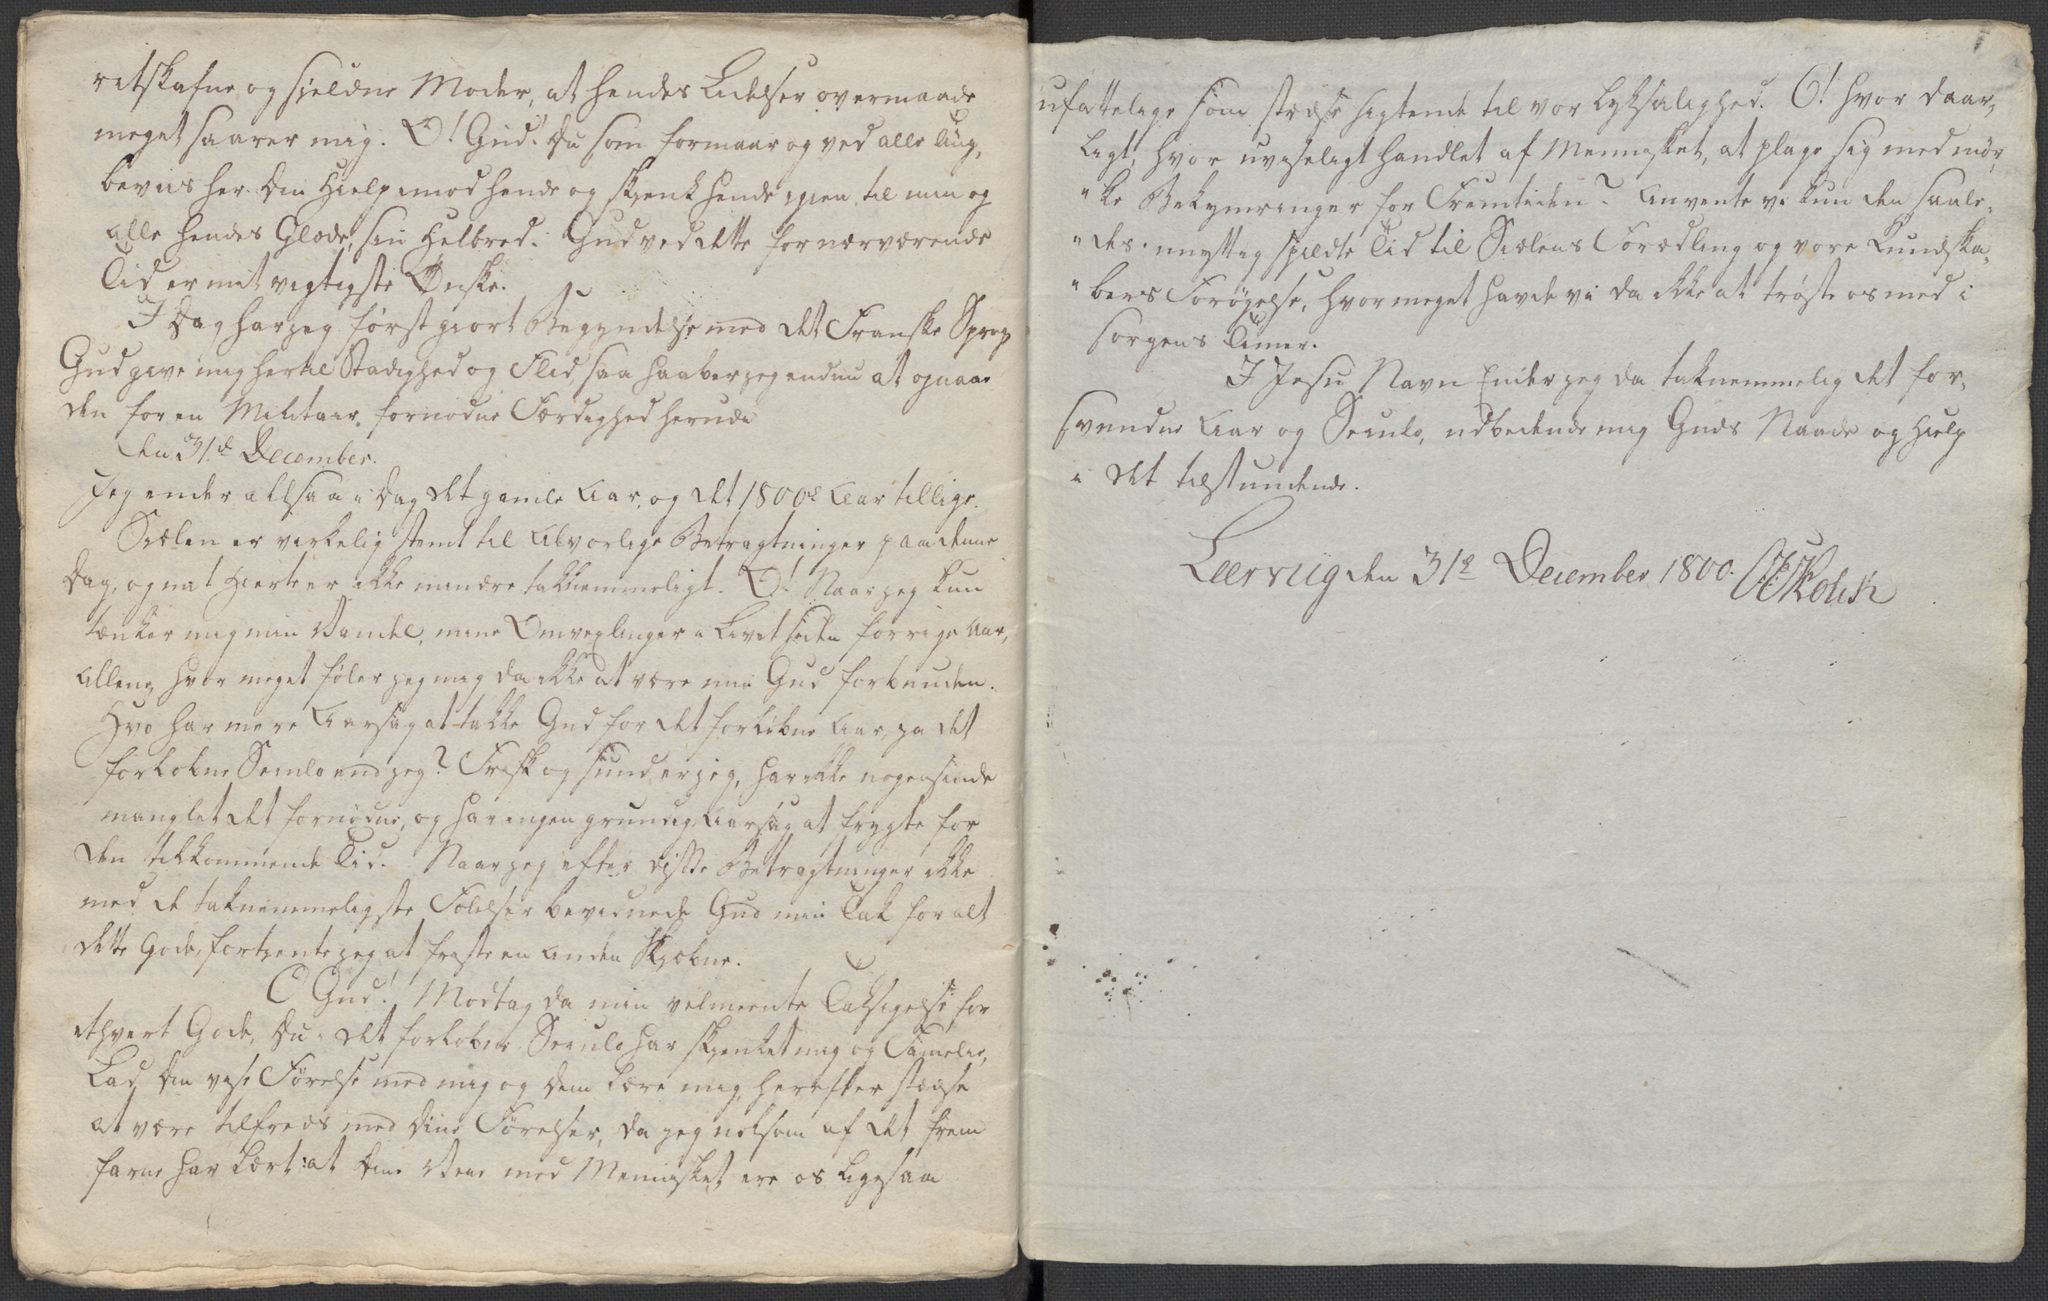 retskafne og sjeldne Moder, at hendes Lidelser overmaade
meget saarer mig. O! Gud! Du som formaar og ved alle Ting,
beviis her Din Hielp imod hende og skjenk hende igien til min og
alle hendes Glæde, sin Helbred. Gud ved dette for nærværende
Tid er mit vigtigste Ønske.
I Dag har jeg først giort Begyndelse med det Franske Sprog
Gud give mig hertil Stadighed og Flid, saa haaber jeg endnu at opnaae
den for en Militair fornødne Færdighed herudi
den 31.d December.
Jeg ender altsaa i Dag det gamle Aar, og det 1800de Aar tillige.
Siælen er virkelig stemt til alvorlige Betragtninger paa denne
Dag, og mit Hierte er ikke mindre taknemmeligt. O! Naar jeg kun
tænker mig min Vandel, mine Omvexlinger i Livet siden forrige Aar,
allene, hvor meget føler jeg mig da ikke at være min Gud forbunden.
Hvo har mere Aarsag at takke Gud for det forløbne Aar, ja det
forløbne Seculo end jeg? Frisk og sund er jeg, har ikke nogensinde
manglet det fornødne, og har ingen grundig Aarsag at frygte for
den tilkommende Tid. Naar jeg efter disse Betragtninger ikke
med de taknemmeligste Følelser bevidnede Gud min Tak for alt
dette Gode, fortjente jeg at friste en anden Skjæbne.
O Gud! Modtag da min velmeente Taksigelse for
ethvert Gode, Du i det forløbne Seculo har skjenket mig og Familie,
Lad Din vise Førelse med mig og dem lære mig, herefter stedse
at være tilfreds med Dine Førelser, da jeg noksom af det frem
farne har lært: at Dine Veie med Mennisket ere os ligesaa
ufattelige som stedse sigtende til vor Lyksalighed. O! hvor daar-
ligt, hvor uviseligt handlet af Mennisket, at plage sig med mør-
"ke Bekymringer for Fremtiden? Anvente vi kun den saale-
"des unyttig spildte Tid til Siælens Forædling og vore Kundska-
"bers Forøgelse, hvor meget havde vi da ikke at trøste os med i
Sorgens Timer.
I Jesu Navn Ender jeg da taknemmelig det for-
svundne Aar og Seculo, udbedende mig Guds Naade og Hielp
i det tilstundende.
Leervig den 31te December 1800.